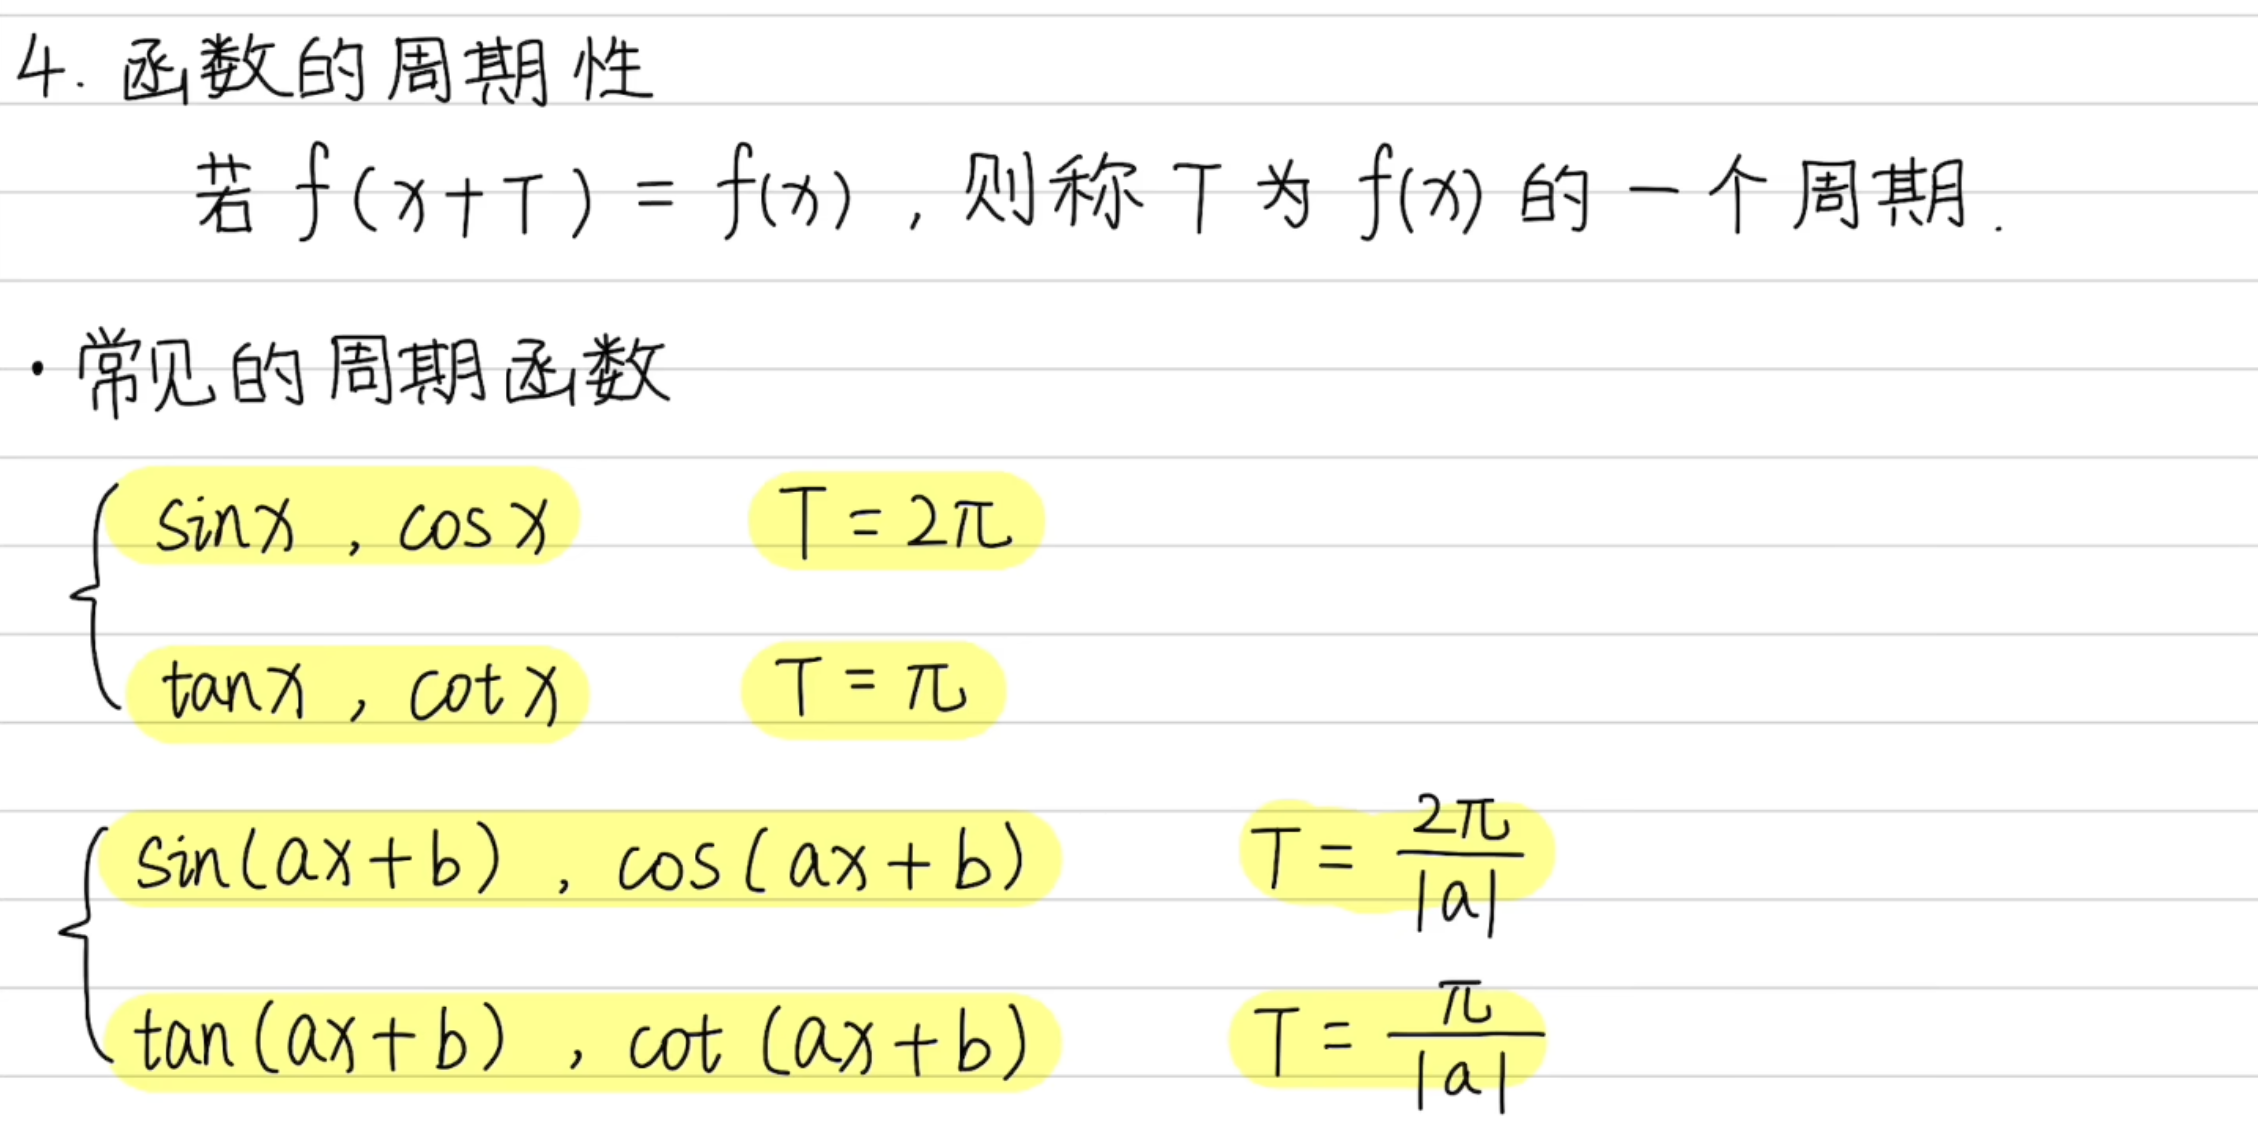 4. 函数的周期性
若 f(x+T) = f(x) , 则称 T 为 f(x) 的一个周期.
· 常见的周期函数
sinx , cosx T = 2π
tanx , cotx T = π
sin(ax+b) , cos(ax+b) T = 2π/|a|
tan(ax+b) , cot(ax+b) T = π/|a|